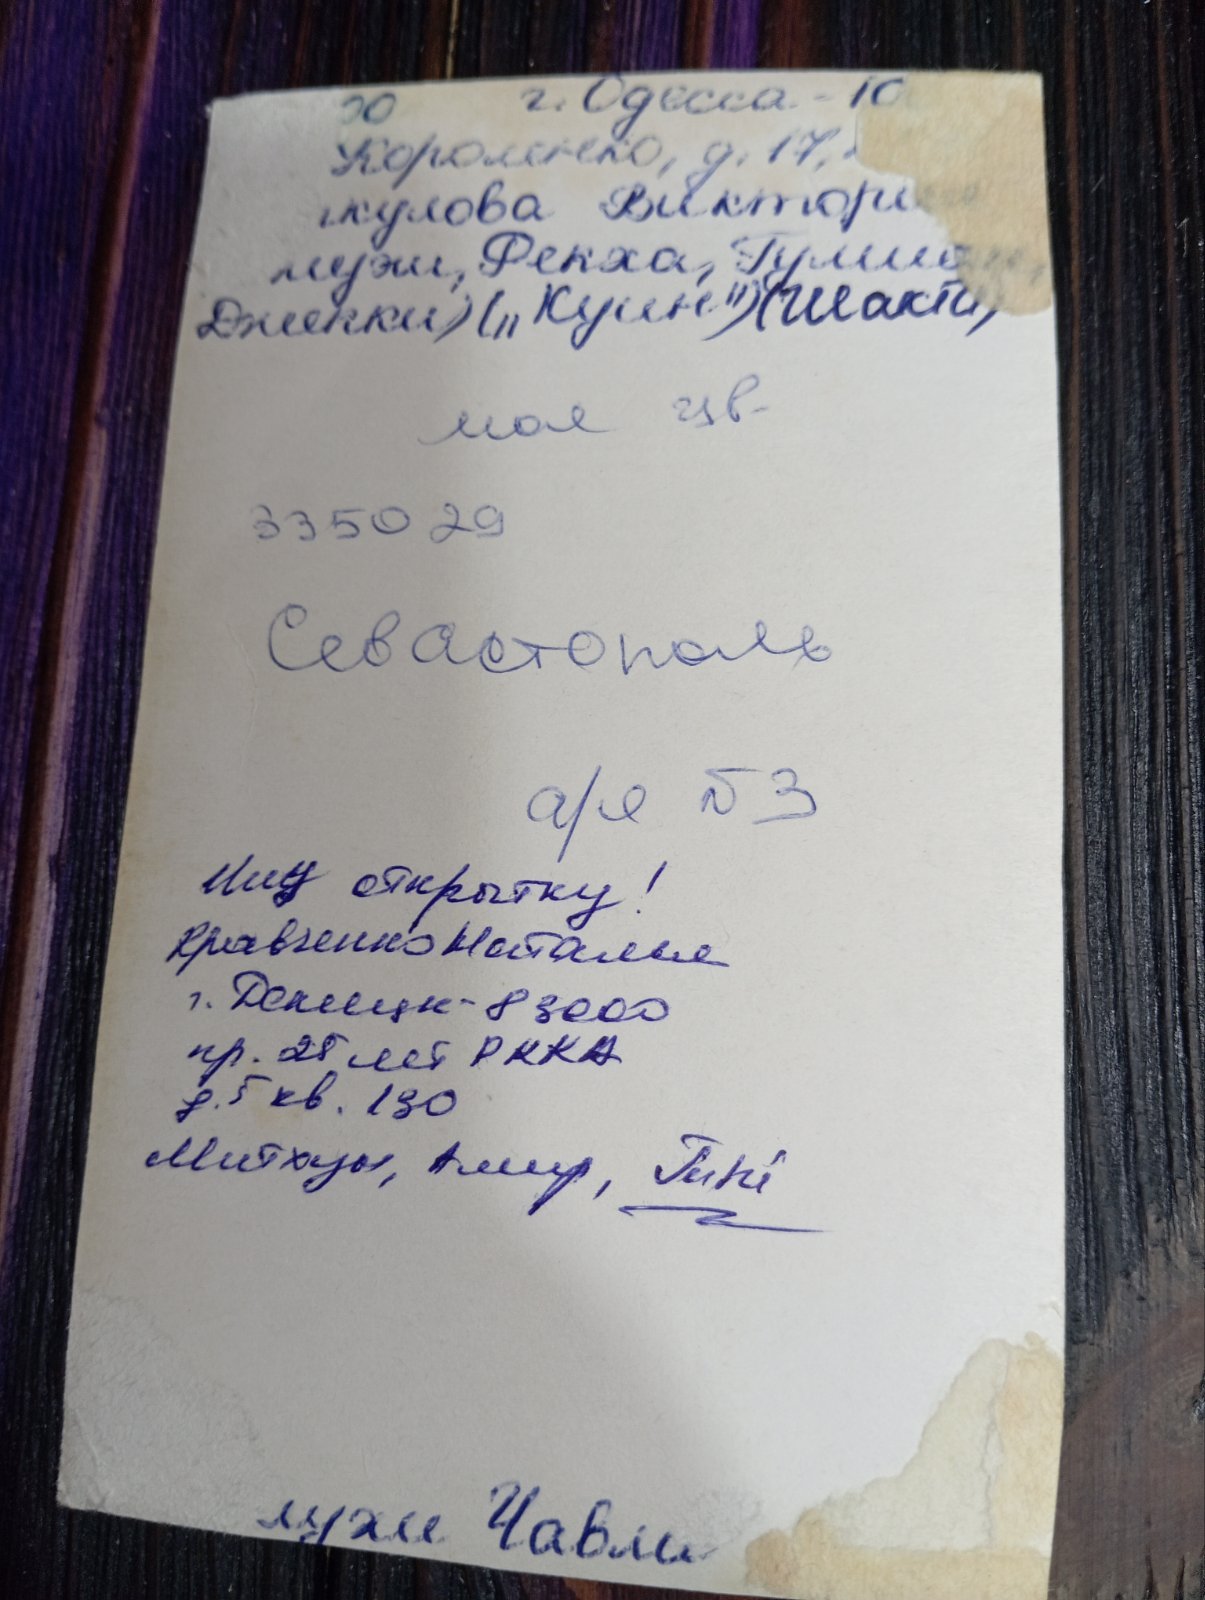 00 г. Одесса - 10
Короленко, д. 17,
кулова Виктори
Рекха,
Джекки) („Куин") (Шакти,
моя цв-
335029
Севастополь
а/я № 3
Ищу открытку!
Кравченко Наталья
г. Донецк - 83000
пр. 25 лет РККА
д. 5 кв. 130
Митхун, Амир,
Чавли